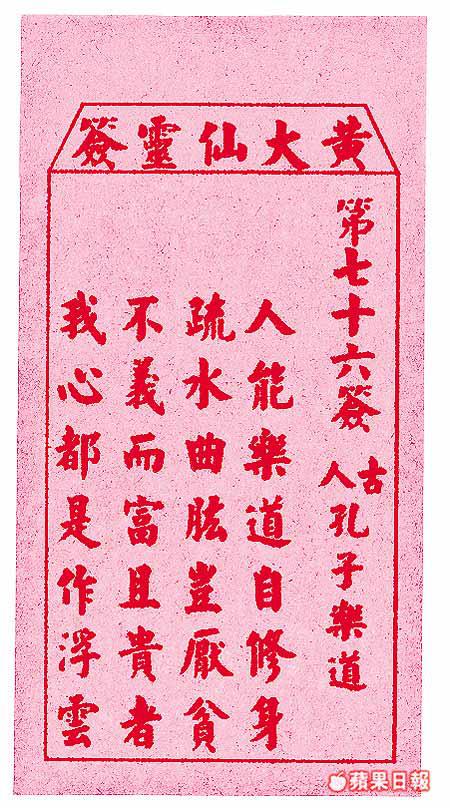 黃大仙靈簽
第七十六簽 古人孔子樂道
人能樂道自修身
疏水曲肱豈厭貧
不義而富且貴者
我心都是作浮雲
蘋果日報